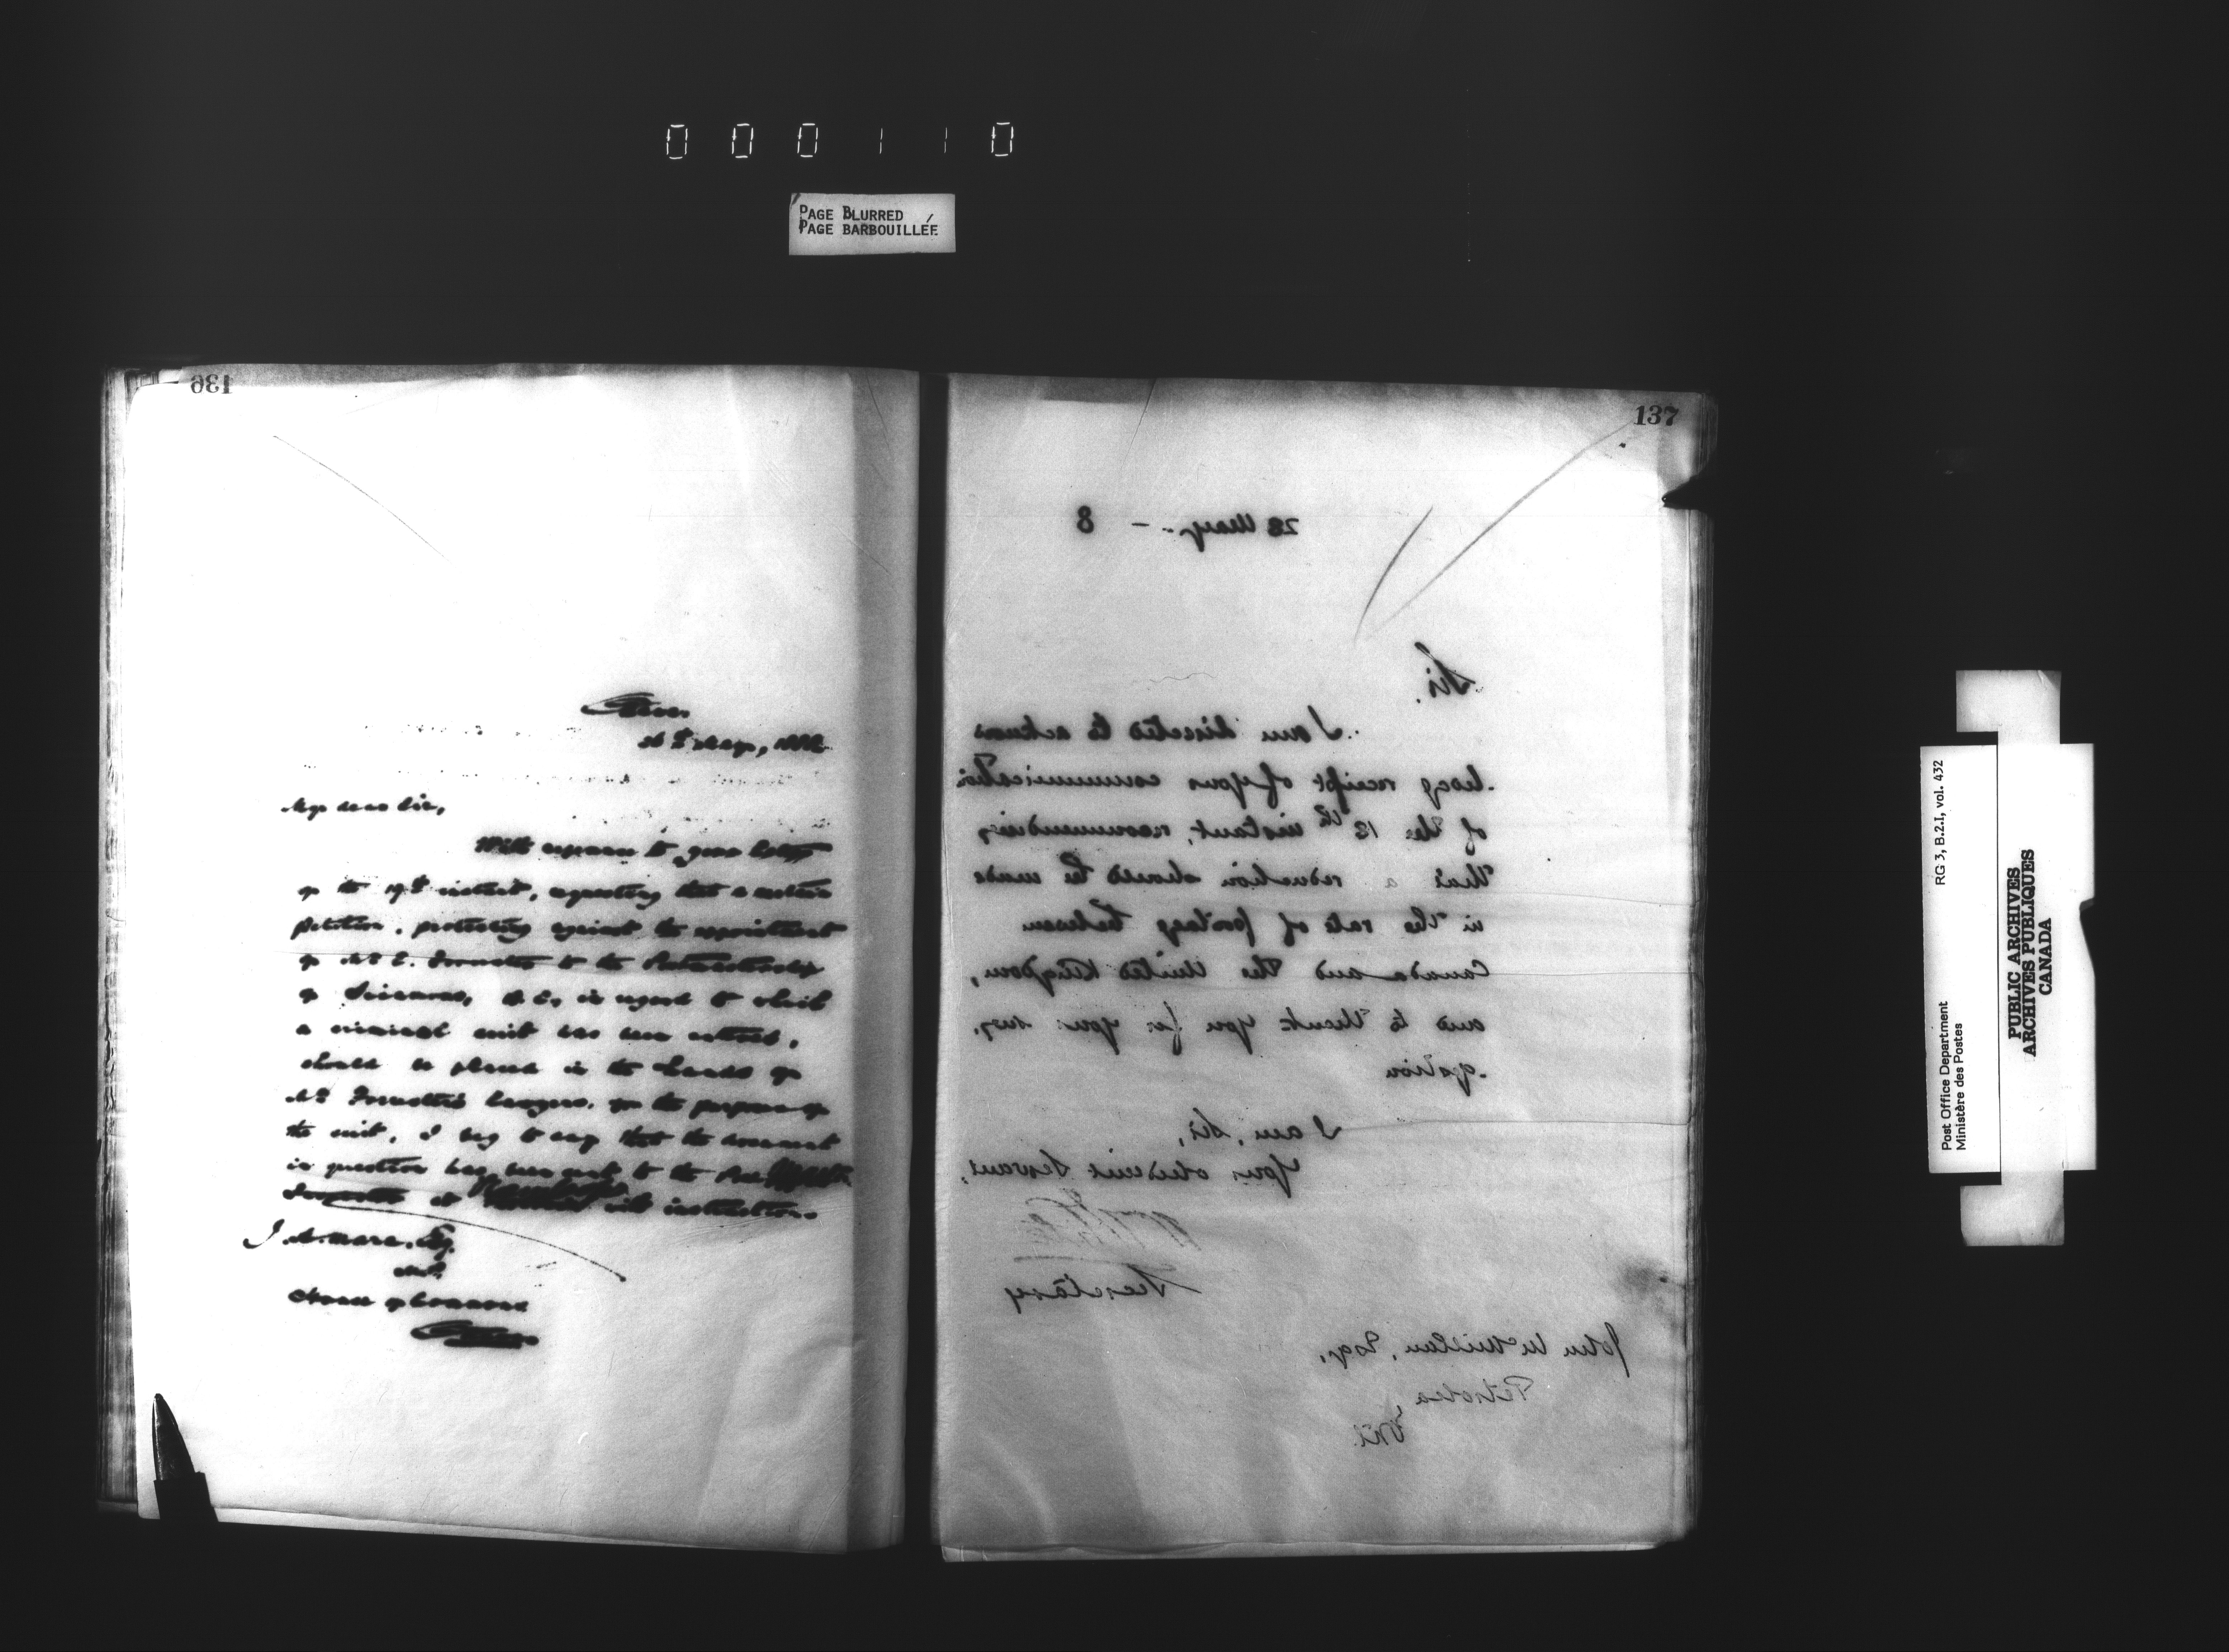 000110
PAGE BLURRED
PAGE BARBOUILLÉE
136
Ottawa,
May, 1888
My dear Sir,
With reference to your letter
of the 19th instant, requesting that a certain
petition, protesting against the appointment
of Mr. to the Postmastership
of in regard to which
a criminal suit has been entered,
should be placed in the hands of
Mr. lawyers, for the purpose of
the suit, I beg to say that the document
in question has been sent to the
at with instructions
J. A. Mara, Esq.
M.P.
House of Commons
Ottawa
137
28 May - 8
Sir,
I am directed to acknow-
ledge receipt of your communication
of the 12th instant, recommending
that a reduction should be made
in the rate of postage between
Canada and the United Kingdom,
and to thank you for your sug-
gestion
I am, Sir,
Your obedient Servant,
Secretary
John McMillan, Esq.,
Petrolea,
Ont.
RG 3, B.2.I, vol. 432
Post Office Department
Ministère des Postes
PUBLIC ARCHIVES
ARCHIVES PUBLIQUES
CANADA